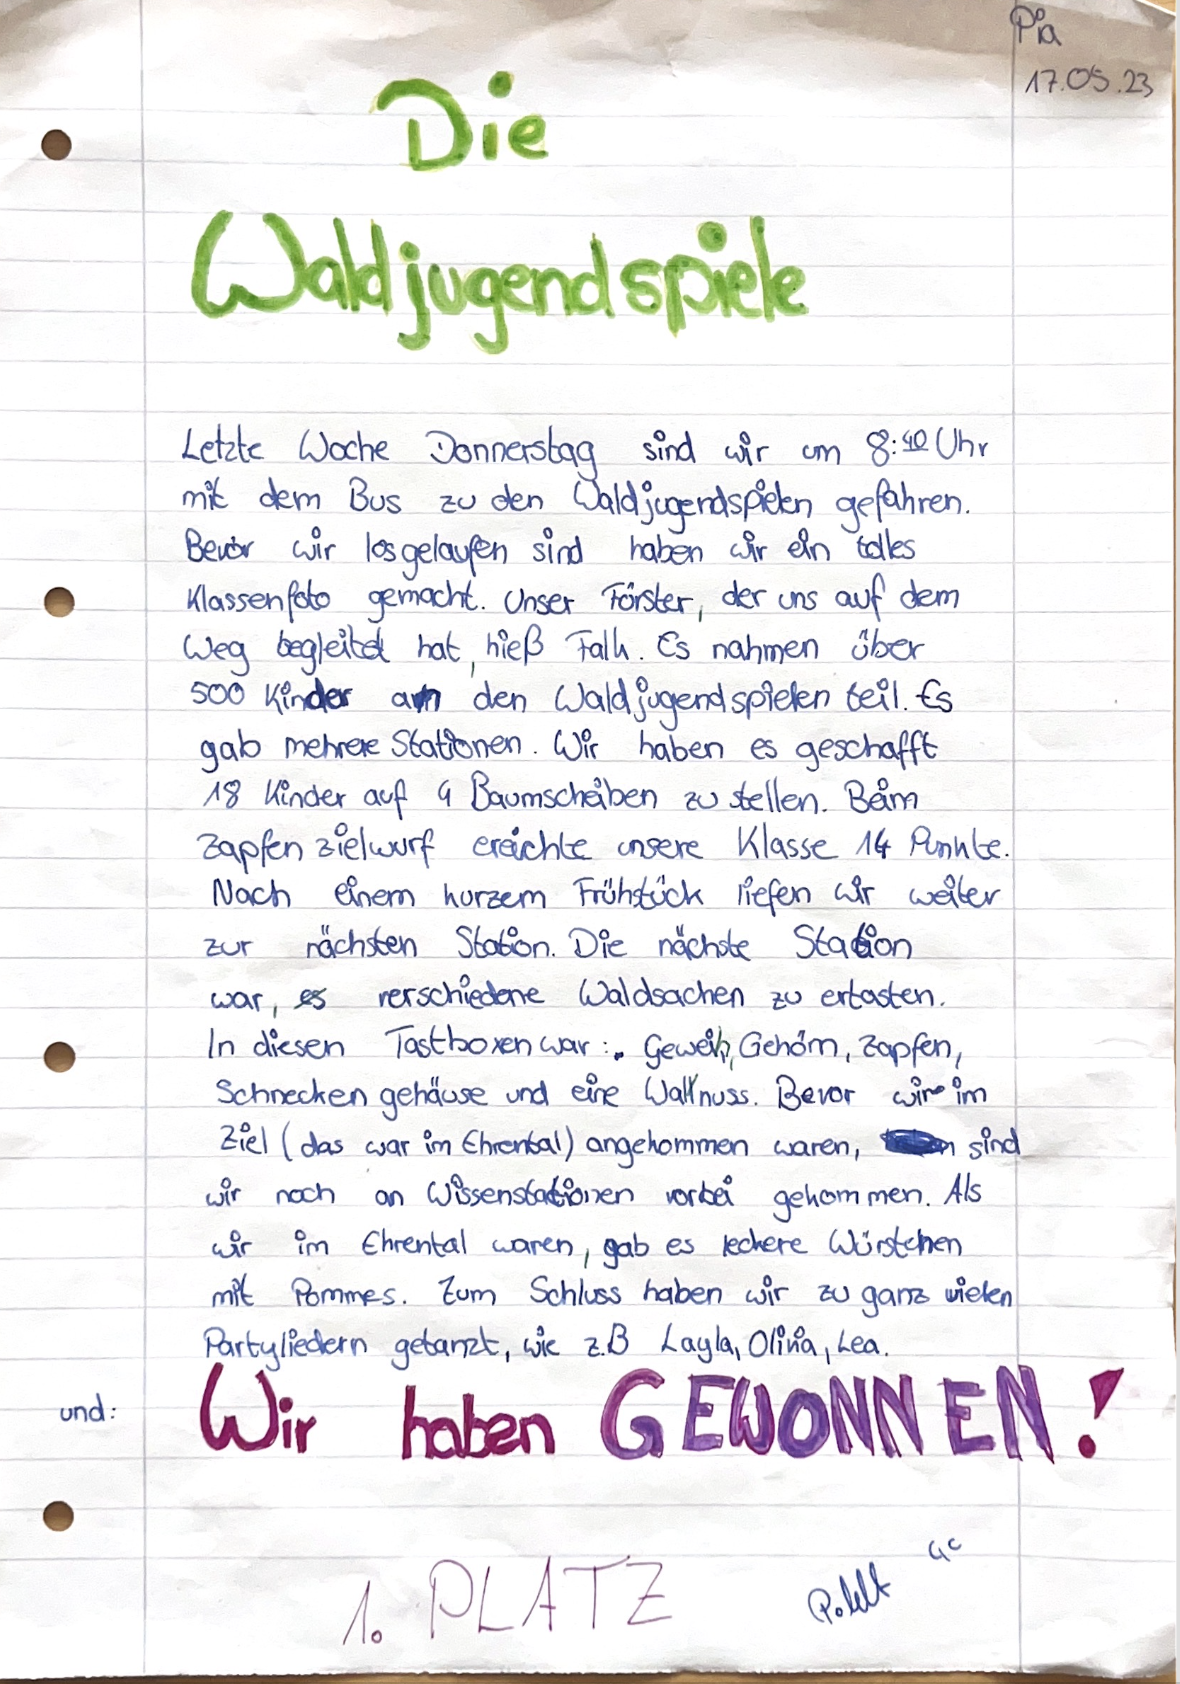 Pia
17.05.23
Die
Waldjugendspiele
Letzte Woche Donnerstag sind wir um 8:40 Uhr
mit dem Bus zu den Waldjugendspielen gefahren.
Bevor wir losgelaufen sind haben wir ein tolles
Klassenfoto gemacht. Unser Förster, der uns auf dem
Weg begleitet hat, hieß Falk. Es nahmen über
500 Kinder an den Waldjugendspielen teil. Es
gab mehrere Stationen. Wir haben es geschafft
18 Kinder auf 4 Baumscheiben zu stellen. Beim
Zapfenzielwurf ereichte unsere Klasse 14 Punkte.
Nach einem kurzem Frühstück liefen wir weiter
zur nächsten Station. Die nächste Station
war, es verschiedene Waldsachen zu ertasten.
In diesen Tastboxen war: Geweih, Gehörn, Zapfen,
Schneckengehäuse und eine Wallnuss. Bevor wir im
Ziel (das war im Ehrental) angekommen waren, sind
wir noch an Wissenstationen vorbei gekommen. Als
wir im Ehrental waren, gab es leckere Würstchen
mit Pommes. Zum Schluss haben wir zu ganz vielen
Partyliedern getanzt, wie z.B Layla, Olivia, Lea.
und: Wir haben GEWONNEN!
1. PLATZ
4c